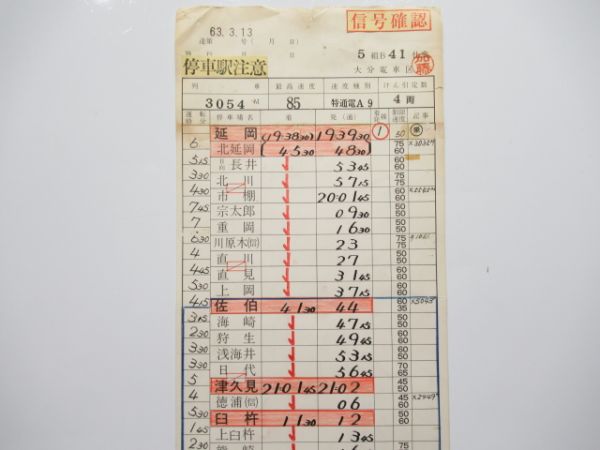 信号確認
63.3.13
達第 号( 月 日)
5組B41仕業
停車駅注意
大分電車区
加藤
列車 最高速度 速度種別 けん引定数
3054M 85 特通電A9 4両
運転時分 停車場名 着 発(通) 着発線 制限速度 記事
延岡 (19·38 30) 19 39 30 1 50
6 北延岡 (45 30 48 30) 75 60
5 15 日向長井 53 45 75 60
北川 57 15
4 30 市棚 20·01 45
7 45 宗太郎 09 30 50 60
7 重岡 16 30 60
6 30 川原木(信) 23 75
4 直川 27
4 45 直見 31 45 60
上岡 37 15
4 15 佐伯 41 30 44 60 35
3 15 海崎 47 15
2 30 狩生 49 45
3 30 浅海井 53 15
3 30 日代 56 45 60 65
5 津久見 21·01 45 21·02 45 50
4 徳浦(信) 06 45 60
5 30 臼杵 11 30 12 50 60
1 45 上臼杵 13 45
2 30 熊崎 16